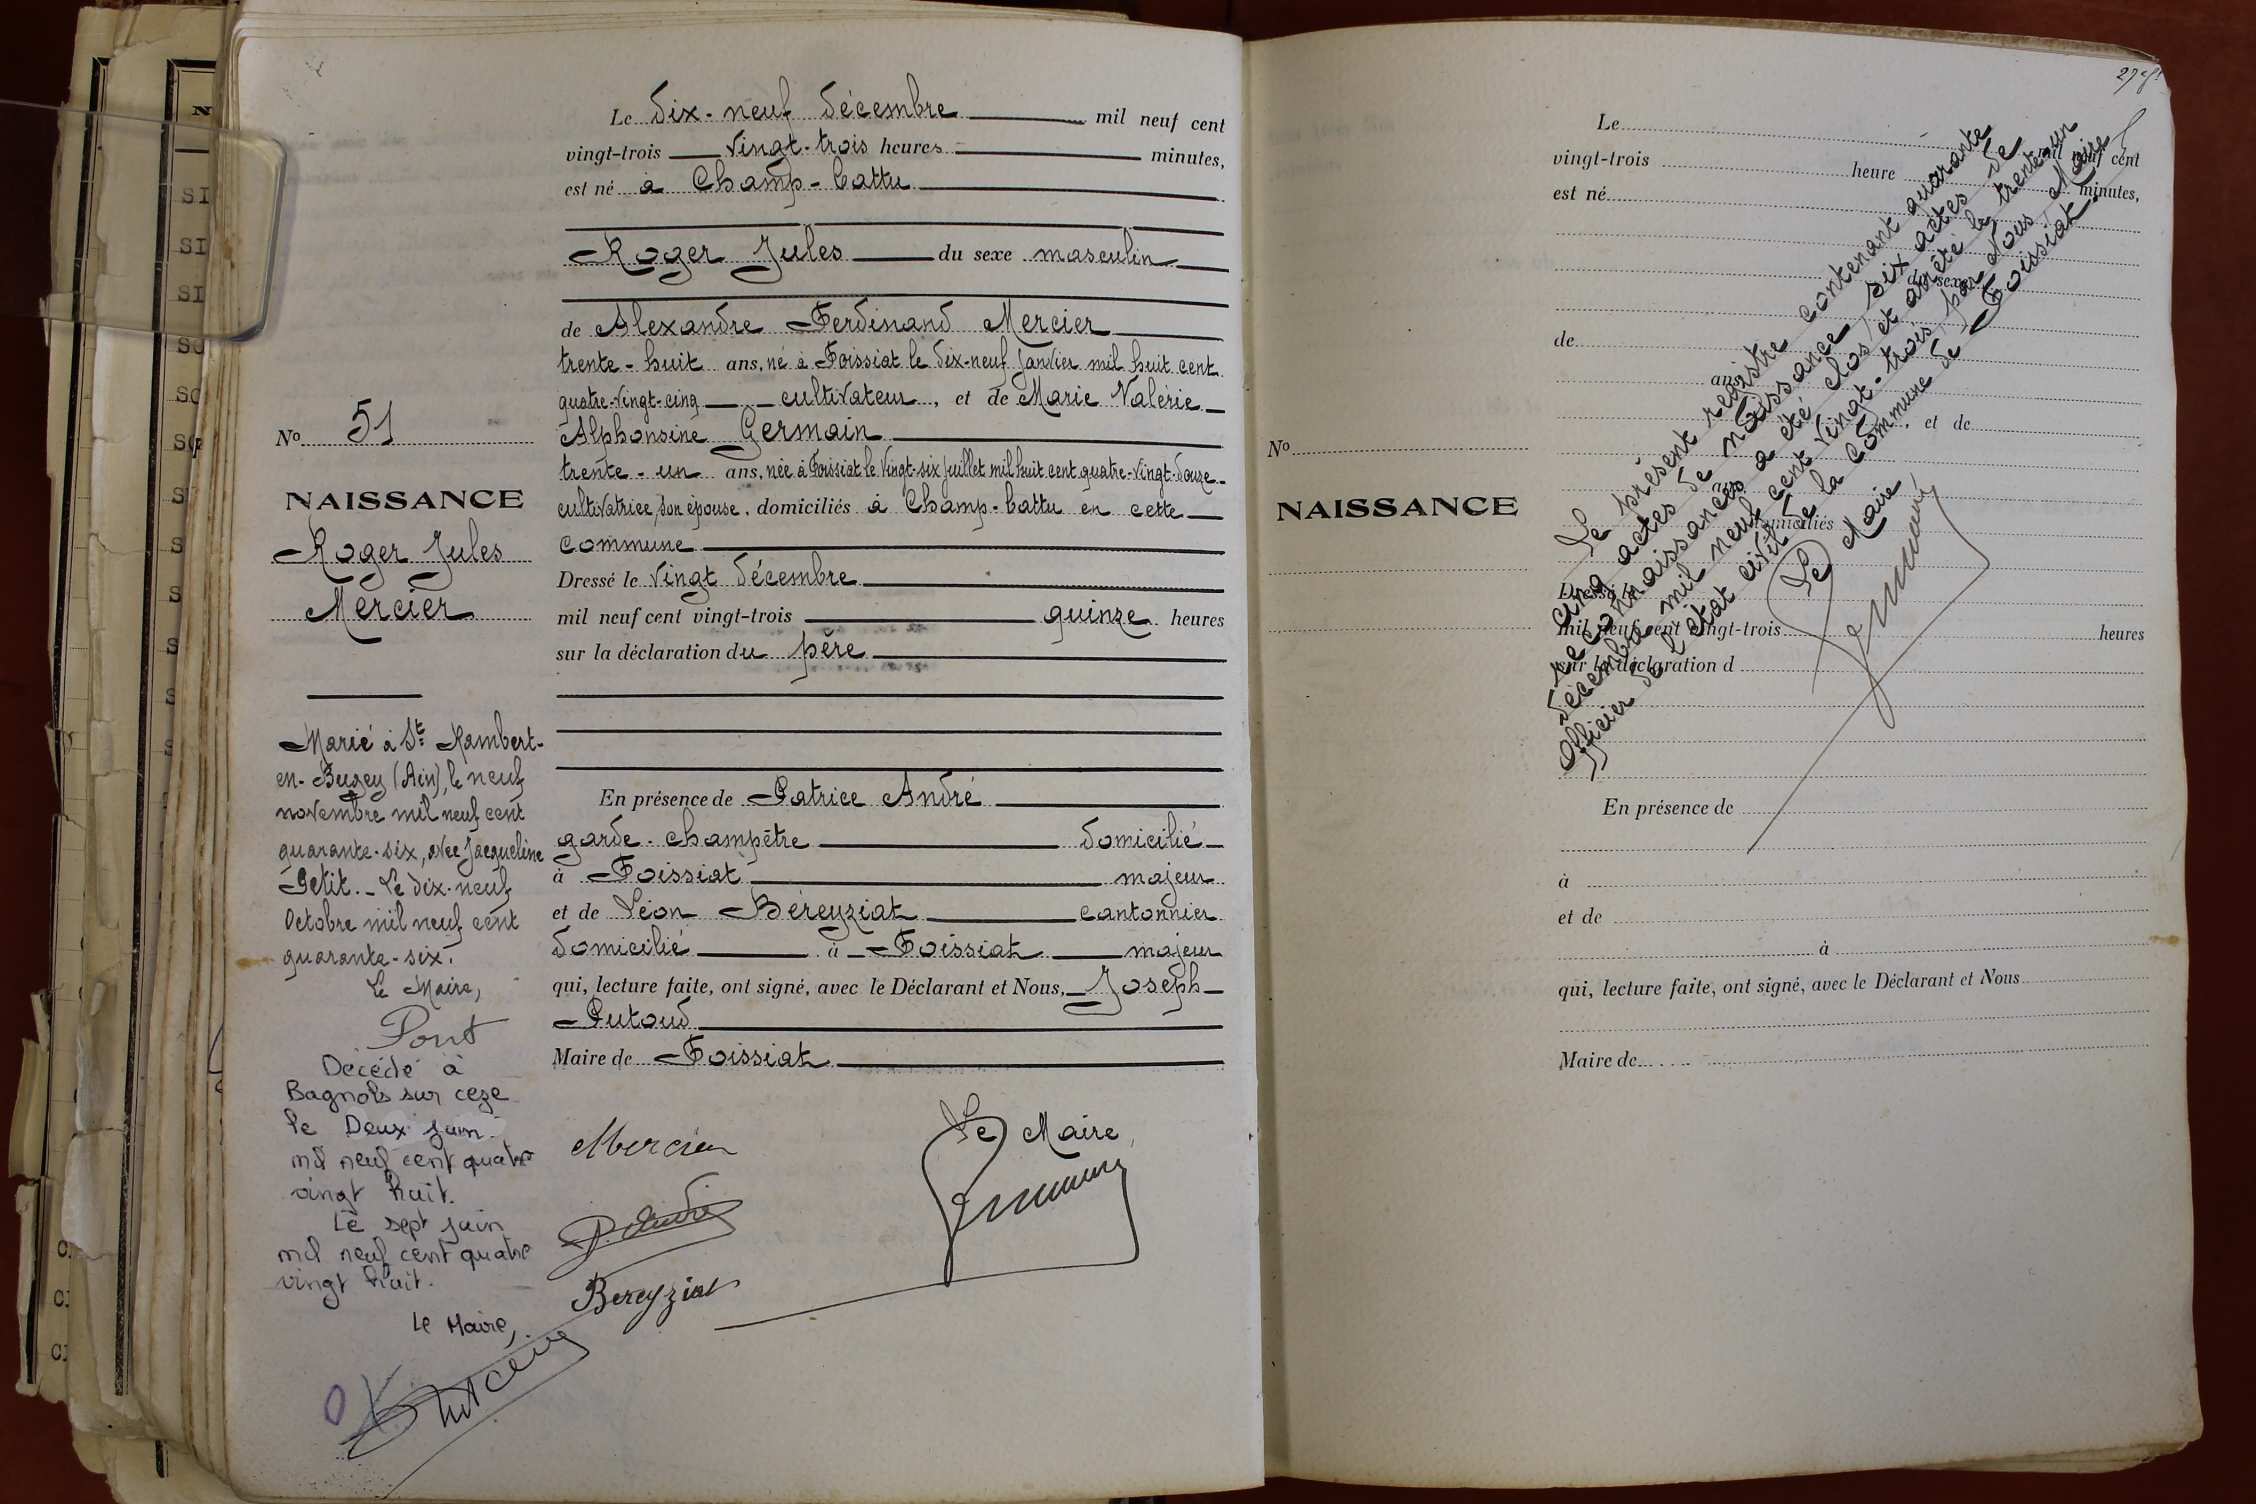 N
SI
SI
SI
SO
SO
S
S
S
S
S
S
N° 51
NAISSANCE
Roger Jules
Mercier
Marié à St Rambert-
en-Bugey (Ain), le neuf
novembre mil neuf cent
quarante-six, avec Jacqueline
Petit. _ Le dix-neuf
Octobre mil neuf cent
quarante-six.
Le Maire,
Pont
Décédé à
Bagnols sur ceze
le Deux juin
mil neuf cent quatre
vingt huit.
Le sept juin
mil neuf cent quatre
vingt huit.
Le Maire,
Le dix-neuf décembre mil neuf cent
vingt-trois vingt-trois heures minutes,
est né à Champ-battu
Roger Jules du sexe masculin
de Alexandre Ferdinand Mercier
trente-huit ans, né à Foissiat le dix-neuf Janvier mil huit cent
quatre-vingt-cinq cultivateur, et de Marie Valérie
Alphonsine Germain
trente-un ans, née à Foissiat le vingt-six Juillet mil huit cent quatre-vingt-douze
cultivatrice, son épouse, domiciliés à Champ-battu en cette
commune
Dressé le vingt décembre
mil neuf cent vingt-trois quinze heures
sur la déclaration du père
En présence de Patrice André
garde-champêtre domicilié
à Foissiat majeur
et de Léon Béreyziat cantonnier
domicilié à Foissiat majeur
qui, lecture faite, ont signé, avec le Déclarant et Nous, Joseph
Putoud
Maire de Foissiat
Mercier
P. André
Bereyziat
Le Maire,
N°
NAISSANCE
Le mil neuf cent
vingt-trois heure minutes,
est né
du sexe
de
ans
et de
ans
domiciliés
Dressé le
mil neuf cent vingt-trois heures
sur la déclaration d
En présence de
à
et de
à
qui, lecture faite, ont signé, avec le Déclarant et Nous
Maire de
Le présent registre contenant quarante
cinq actes de naissance, six actes de
reconnaissances a été clos et arrêté le trente-un
décembre mil neuf cent vingt-trois par Nous Maire
officier de l'état civil de la commune de Foissiat.
Le Maire